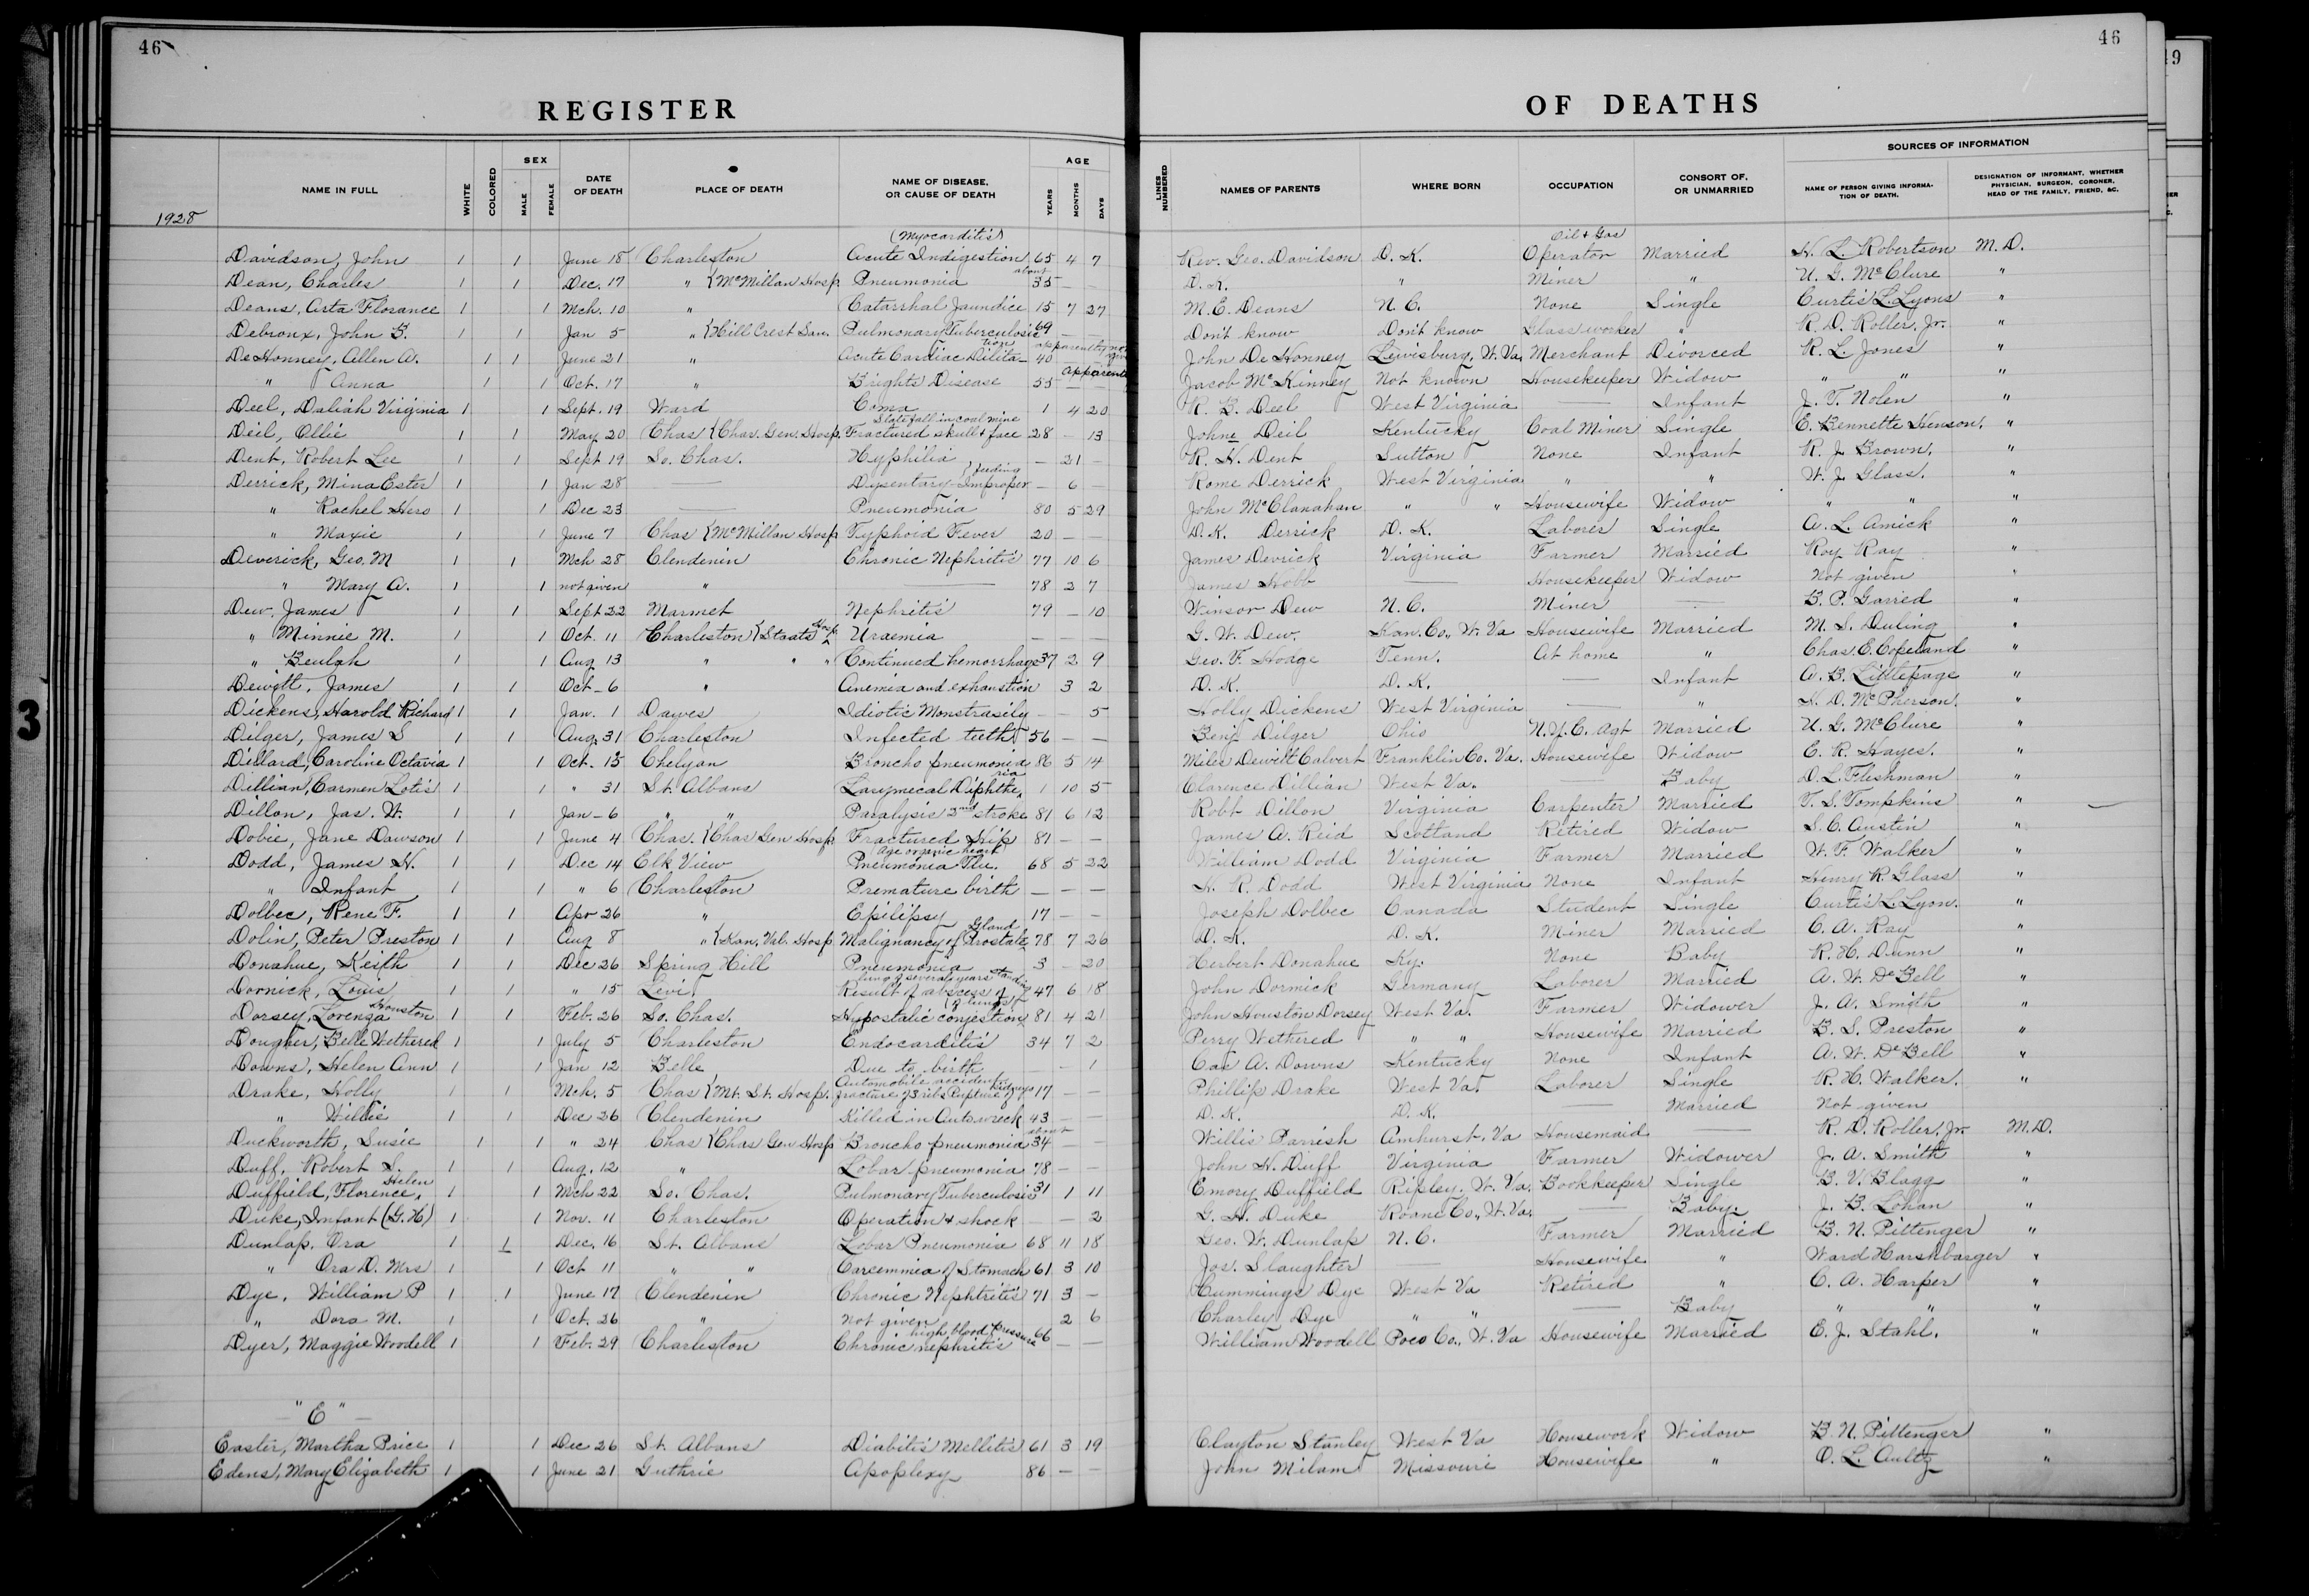 46
46
19
REGISTER OF DEATHS
NAME IN FULL WHITE COLORED SEX MALE FEMALE DATE OF DEATH PLACE OF DEATH NAME OF DISEASE, OR CAUSE OF DEATH AGE YEARS MONTHS DAYS LINES NUMBERED NAMES OF PARENTS WHERE BORN OCCUPATION CONSORT OF, OR UNMARRIED SOURCES OF INFORMATION NAME OF PERSON GIVING INFORMATION OF DEATH. DESIGNATION OF INFORMANT, WHETHER PHYSICIAN, SURGEON, CORONER, HEAD OF THE FAMILY, FRIEND, &C.
1928
Davidson, John 1 1 June 18 Charleston (Myocarditis) Acute Indigestion 65 4 7 Rev. Geo. Davidson D. K. Oil & Gas Operator Married H. L. Robertson M. D.
Dean, Charles 1 1 Dec. 17 " {McMillan Hosp. Pneumonia about 35 — — D. K. " Miner " U. G. McClure "
Deans, Arta Florance 1 1 Mch. 10 " Catarrhal Jaundice 15 7 27 M. E. Deans N. C. None Single Curtis L. Lyons "
Debroux, John B. 1 1 Jan 5 " {Hill Crest San. Pulmonary Tuberculosis 69 — — Don't know Don't know Glass worker " R. D. Roller, Jr. "
De Honney, Allen A. 1 1 June 21 " Acute Cardiac Dilitation 40 — John De Honney Lewisburg, W. Va. Merchant Divorced R. L. Jones "
" Anna 1 1 Oct. 17 " Brights Disease 55 — — Jacob McKinney Not known Housekeeper Widow " " "
Deel, Daliah Virginia 1 1 Sept. 19 Ward Coma 1 4 20 R. B. Deel West Virginia — Infant J. T. Nolen "
Deil, Ollie 1 1 May 20 Chas {Chas. Gen. Hosp. Slate fall in coal mine Fractured skull & face 28 — 13 Johne Deil Kentucky Coal Miner Single E. Bennette Henson. "
Dent, Robert Lee 1 1 Sept 19 So. Chas. Hyphilia — 21 — R. H. Dent Sutton None Infant R. J. Brown. "
Derrick, Mina Ester 1 1 Jan 28 — Dysentary-Improper feeding — 6 — Rome Derrick West Virginia " " W. J. Glass. "
" Rachel Hero 1 1 Dec 23 — Pneumonia 80 5 29 John McClanahan " " Housewife Widow " " "
" Maxie 1 1 June 7 Chas {McMillan Hosp Typhoid Fever 20 — — D. K. Derrick D. K. Laborer Single A. L. Amick "
Deverick, Geo. M 1 1 Mch 28 Clendenin Chronic Nephritis 77 10 6 James Devrick Virginia Farmer Married Roy Ray "
" Mary A. 1 1 not given " — 78 2 7 James Hobb — Housekeeper Widow Not given "
Dew, James 1 1 Sept 22 Marmet Nephritis 79 — 10 Winsor Dew N. C. Miner — B. P. Garred "
" Minnie M. 1 1 Oct. 11 Charleston {Staats Hosp. Uraemia — — — G. W. Dew. Kan. Co., W. Va Housewife Married M. S. Duling "
" Beulah 1 1 Aug 13 " " " Continued hemorrhage 37 2 9 Geo. F. Hodge Tenn. At home " Chas. E. Copeland "
Dewitt, James 1 1 Oct-6 " Anemia and exhaustion 3 2 D. K. D. K. — Infant A. B. Littlepage "
Dickens, Harold Richard 1 1 Jan. 1 Dawes Idiotic Monstrasily — — 5 Holly Dickens West Virginia — " H. D. McPherson. "
Dilger, James S 1 1 Aug. 31 Charleston Infected teeth 56 — — Benj Dilger Ohio N.Y.C. Agt Married U. G. McClure "
Dillard, Caroline Octavia 1 1 Oct. 15 Chelyan Broncho pneumonia 86 5 14 Miles Dewitt Calvert Franklin Co. Va. Housewife Widow E. R. Hayes. "
Dillian, Carmen Lotis 1 1 " 31 St. Albans Larymecal Diphtheria 1 10 5 Clarence Dillian West Va. Baby D. L. Fleshman "
Dillon, Jas. W. 1 1 Jan-6 " " Paralysis 2nd stroke 81 6 12 Robt Dillon Virginia Carpenter Married T. S. Tompkins "
Dobie, Jane Dawson 1 1 June 4 Chas. {Chas Gen Hosp. Fractured Hip 81 — — James A. Reid Scotland Retired Widow S. C. Austin "
Dodd, James H. 1 1 Dec 14 Elk View Age organic heart Pneumonia Flu. 68 5 22 William Dodd Virginia Farmer Married W. F. Walker "
" Infant 1 1 " 6 Charleston Premature birth — — — H. R. Dodd West Virginia None Infant Henry R. Glass "
Dolbec, Rene F. 1 1 Apr 26 " Epilipsy 17 — — Joseph Dolbec Canada Student Single Curtis L. Lyon. "
Dolin, Peter Preston 1 1 Aug 8 " {Kan. Val. Hosp. Malignancy of Prostate Gland 78 7 26 D. K. D. K. Miner Married C. A. Ray "
Donahue, Keith 1 1 Dec 26 Spring Hill Pneumonia 3 — 20 Herbert Donahue Ky. None Baby R. H. Dunn "
Dornick, Louis 1 1 " 15 Levi Result of abscess of lung of severale years standing 47 6 18 John Dormick Germany Laborer Married A. W. DeBell "
Dorsey, Lorenza Houston 1 1 Feb. 26 So. Chas. Hypostalic conjestion (of lungs) 81 4 21 John Houston Dorsey West Va. Farmer Widower J. A. Smith "
Dougher, Belle Wethered 1 1 July 5 Charleston Endocarditis 34 7 2 Perry Wethered " " Housewife Married B. S. Preston "
Downs, Helen Ann 1 1 Jan 12 Belle Due to birth — 1 Cas A. Downs Kentucky None Infant A. W. DeBell "
Drake, Holly 1 1 Mch. 5 Chas {Mt. St. Hosp. Automobile accident fracture of 3 ribs Rupture of kidneys 17 — — Phillip Drake West Va. Laborer Single R. H. Walker. "
" Willie 1 1 Dec 26 Clendenin Killed in Auto wreck 43 — — D. K. D. K. — Married Not given
Duckworth, Susie 1 1 " 24 Chas {Chas Gen Hosp Broncho pneumonia about 34 — — Willis Parrish Amhurst, Va Housemaid — R. D. Roller, Jr. M.D.
Duff, Robert S. 1 1 Aug. 12 " Lobar pneumonia 78 — — John H. Duff Virginia Farmer Widower J. A. Smith "
Duffield, Florence Helen 1 1 Mch 22 So. Chas. Pulmonary Tuberculosis 31 1 11 Emory Duffield Ripley, W. Va. Bookkeeper Single B. V. Blagg "
Duke, Infant (G. H) 1 1 Nov. 11 Charleston Operation & shock — — 2 G. H. Duke Roane Co., W. Va. — Baby. J. B. Lohan "
Dunlap, Ora 1 1 Dec. 16 St. Albans Lobar Pneumonia 68 11 18 Geo. W. Dunlap N. C. Farmer Married B. N. Pittenger "
" Ora D. Mrs 1 1 Oct 11 " " Carcemmia of Stomach 61 3 10 Jos. Slaughter — Housewife " Ward Harshbarger "
Dye, William P 1 1 June 17 Clendenin Chronic Nephtritis 71 3 — Cummings Dye West Va Retired " C. A. Harper "
" Dora M. 1 1 Oct. 26 " Not given 2 6 Charley Dye " " — Baby " " "
Dyer, Maggie Woodell 1 1 Feb. 29 Charleston high blood pressure Chronic nephritis 66 — — William Woodell Poco Co., W. Va Housewife Married E. J. Stahl. "
— "E" —
Easter, Martha Price 1 1 Dec 26 St. Albans Diabitis Mellitis 61 3 19 Clayton Stanley West Va Housework Widow B. N. Pittenger "
Edens, Mary Elizabeth 1 1 June 21 Guthrie Apoplexy 86 — — John Milam Missouri Housewife " O. L. Aultz "
3